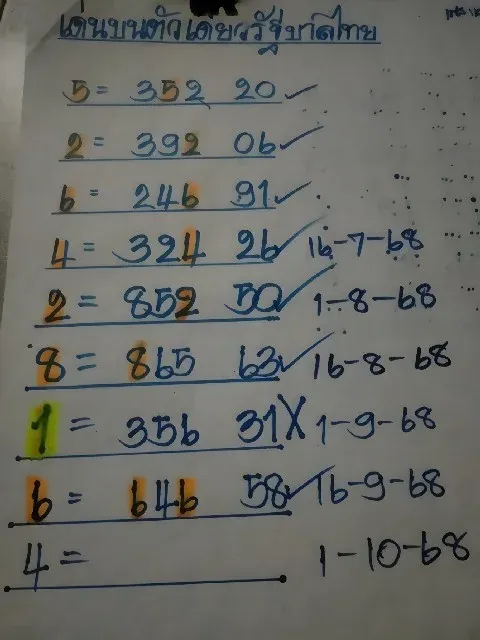 เด่นบนตัวเดียวรัฐบาลไทย
5 = 352 20 ✓
2 = 392 06 ✓
6 = 246 91 ✓
4 = 324 26 ✓ 16-7-68
2 = 852 50 ✓ 1-8-68
8 = 865 63 ✓ 16-8-68
1 = 356 31 X 1-9-68
6 = 646 58 ✓ 16-9-68
4 = 1-10-68